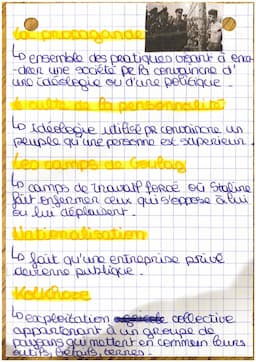 La propagande
↳ ensemble des pratiques visant à enca-
-drer une société pr la convaincre d'
une idéologie ou d'une politique.
culte de la personnalité
↳ idéologie utilisé pr convaincre un
peuple qu'une personne est supérieur
Les camps de Goulag
↳ camps de travail forcé où Staline
fait enfermer ceux qui s'oppose à lui
ou lui déplaisent.
Nationalisation
↳ fait qu'une entreprise privé
devienne publique.
Kolkhoze
↳ exploitation agricole collective
appartenant à un groupe de
paysans qui mettent en commun leurs
outils, bétails, terres.